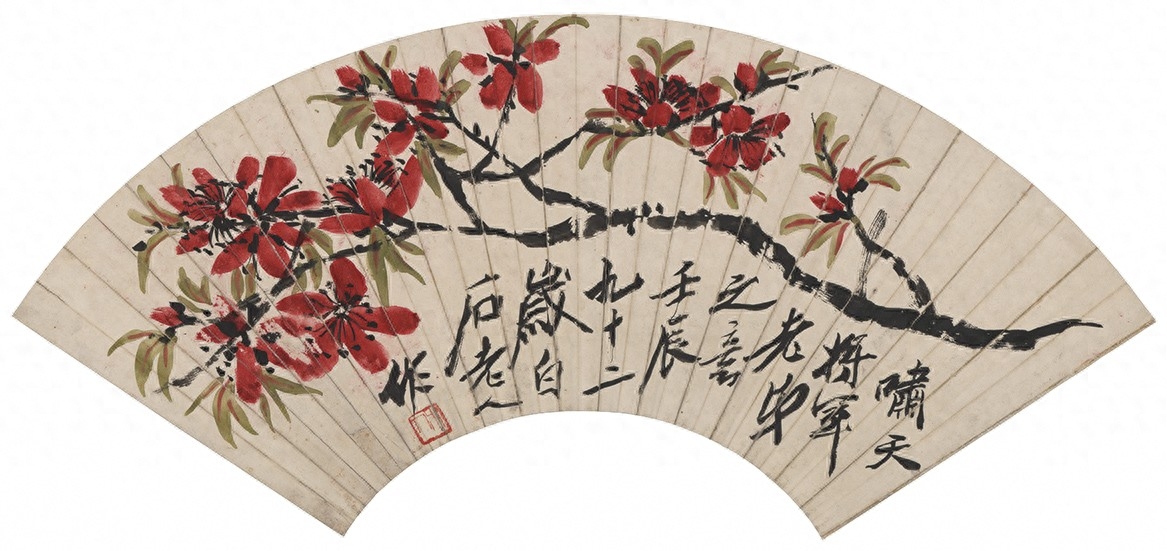 嘯天
將軍
老弟
之
壬辰
九十二
歲白
石老人
作